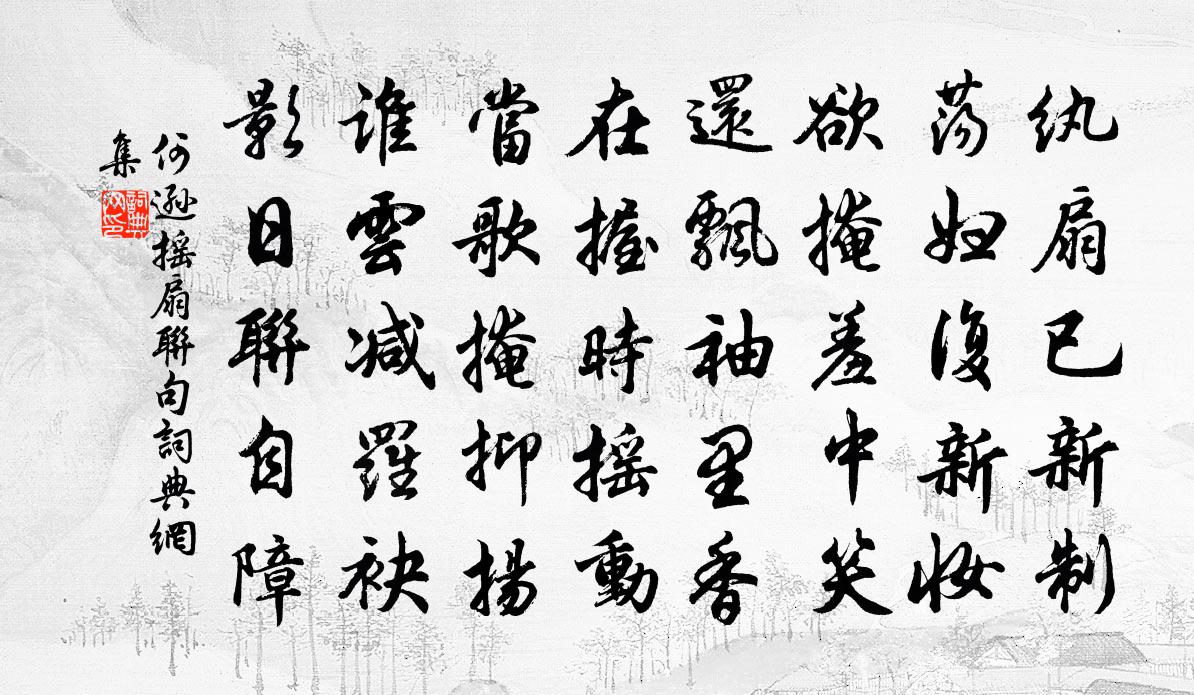 纨扇已新制
荡妇复新妆
欲掩羞中笑
還飄袖里香
在握時摇動
當歌掩抑揚
谁雲减羅袂
影日聯自障
何遜摇扇聯句詞典網
集
詞典網印